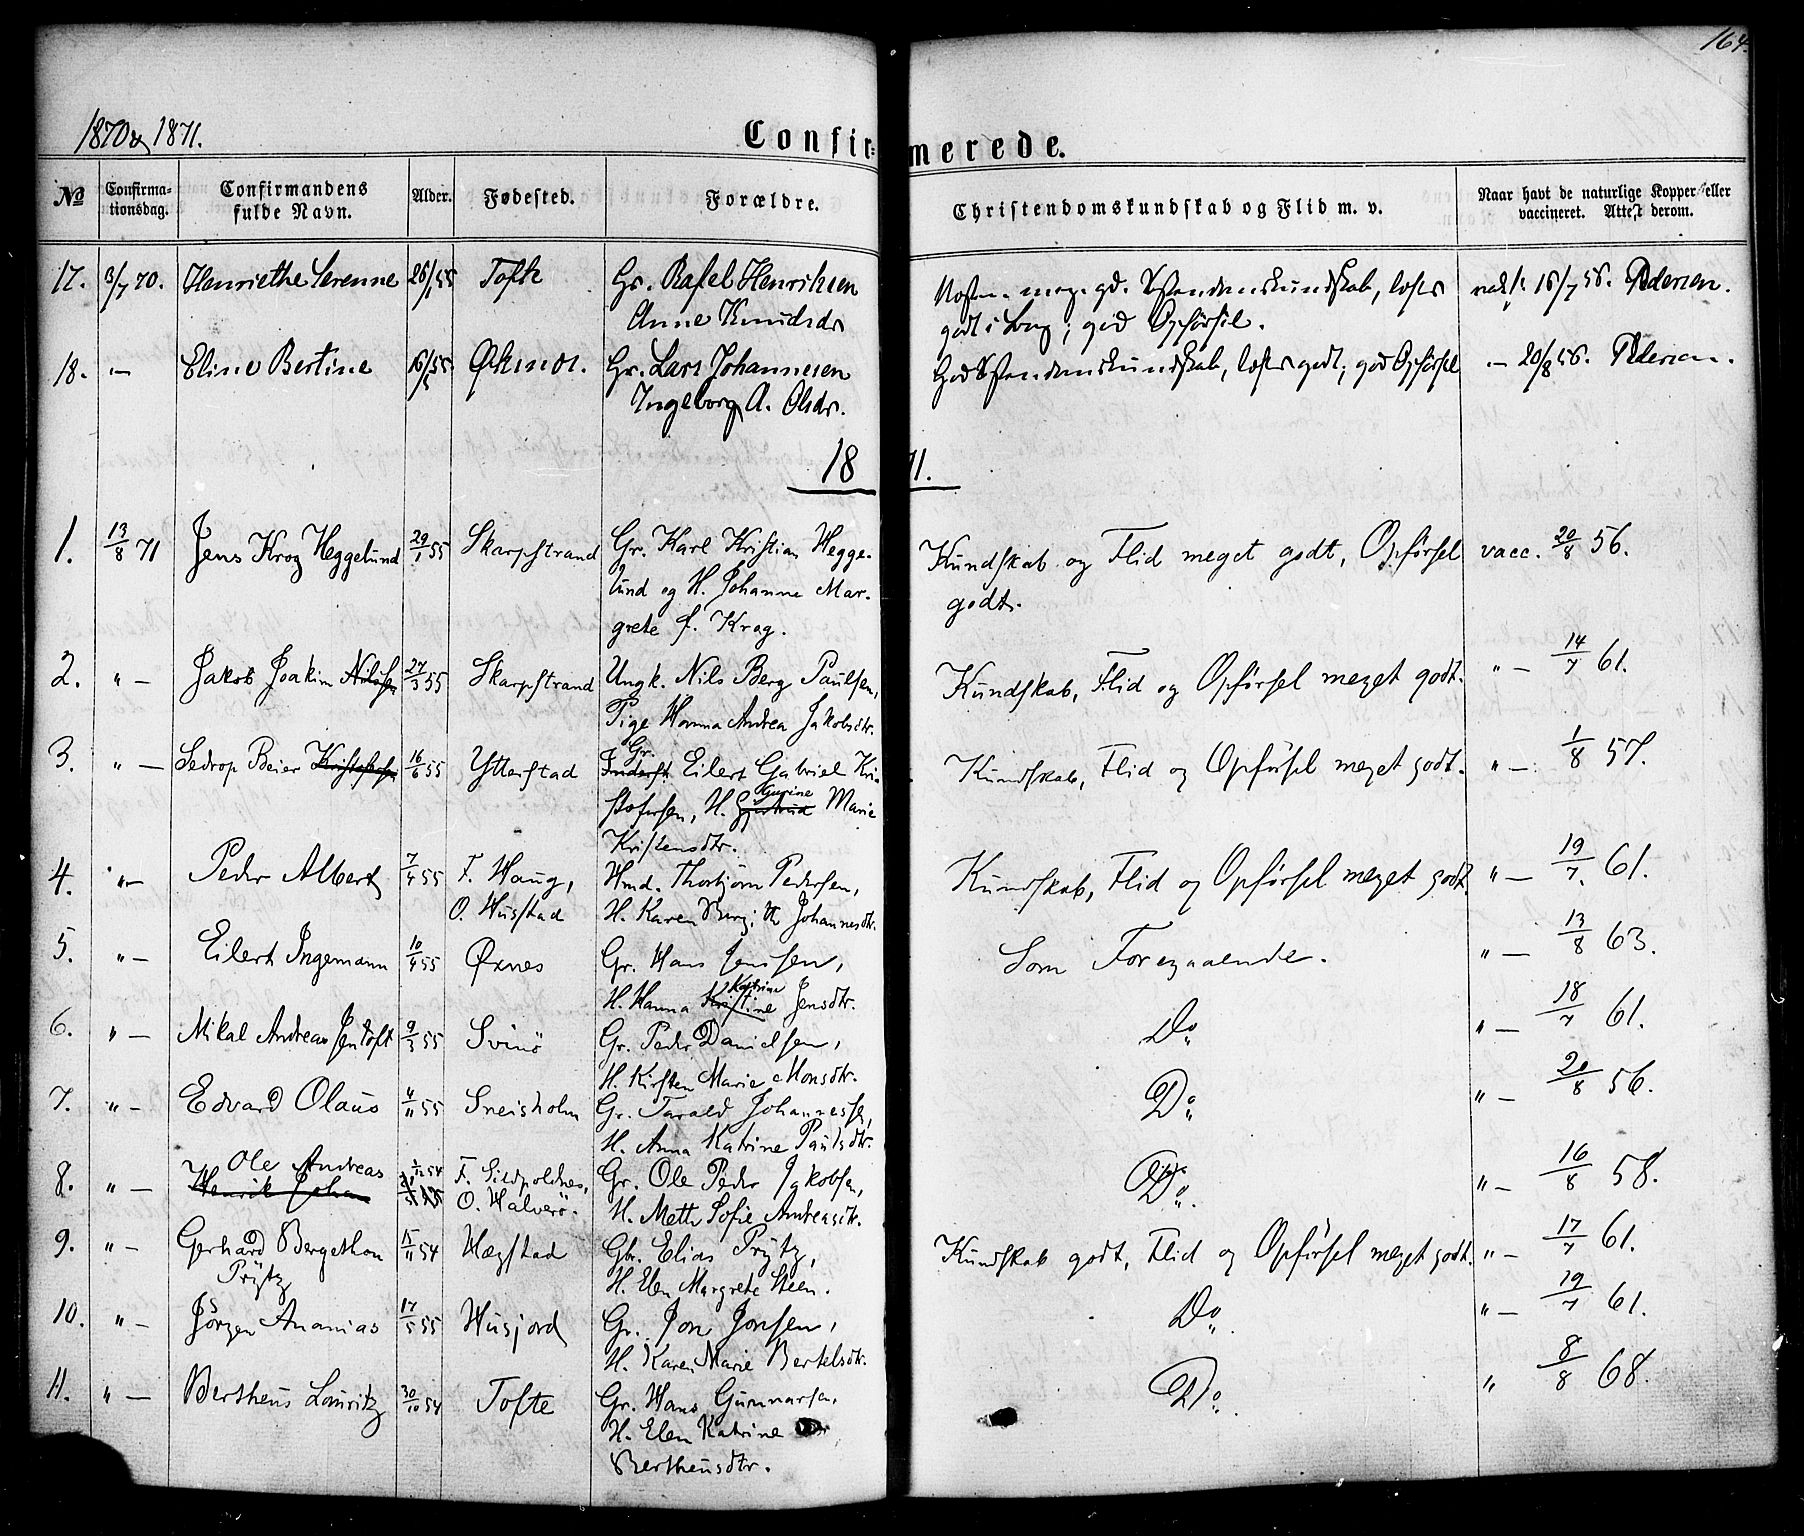 164.
1870 & 1871.
Confirmerede.
No
Confirmationsdag.
Confirmandens fulde Navn.
Alder.
Fødested.
Forældre.
Christendomskundskab og Flid m. v.
Naar havt de naturlige Kopper eller vaccineret. Attest derom.
17. 3/7 70. Henriethe Serenne 26/1 55 Tofte Gr. Rafel Henriksen
Anne Knudsdr
godt i Bog; god Opførsel. 16/7 56. Pedersen.
18. — Eline Bertine 55 Gr. Lars Johannesen God Kristendomskundskab, læser godt; god Opførsel — 20/8 56. Pedersen.
Ingeborg A. Olsdr.
1871.
1. 13/8 71 Jens Krog Heggelund 29/1 55 Skarpstrand Gr. Karl Kristian Hegge- Kundskab og Flid meget godt, Opførsel vacc. 20/8 56.
lund og H. Johanne Mar- godt.
grete f. Krog.
2. " — Jakob Joakim Nilssen 27/3 55 Skarpstrand Ungk. Nils Berg Paulsen, Kundskab, Flid og Opførsel meget godt. " — 14/7 61.
Pige Hanna Andrea Jakobsdtr.
3. " — Sedrop Beier Kristofersen 16/6 55 Ytterstad Gr. Inderst Eilert Gabriel Kri- Kundskab, Flid og Opførsel meget godt. " — 1/8 57.
stofersen, H. Gjertrud Gurine Marie
Kristensdtr.
4. " — Peder Albert 7/4 55 F. Haug, Hmd. Thorbjörn Pedersen, Kundskab, Flid og Opførsel meget godt " — 19/7 61.
O. Husstad H. Karen Johannesdtr.
5. " — Eilert Ingemann 10/4 55 Øxnes Gr. Hans Jenssen, Som Foregaaende. " — 13/8 63.
H. Hanna Kristine Katrine Jensdtr.
6. " — Mikal Andreas Jentoft 9/3 55 Svinö Gr. Peder Danielsen, Do " — 18/7 61.
H. Kirsten Marie Monsdtr.
7. " — Edvard Olaus 4/11 55 Sneisholm Gr. Tarald Johannessen, Do " — 20/8 56.
H. Anna Katrine Paulsdtr.
8. " — Ole Andreas Henrik Johan 54 F. O. Halverö. Gr. Ole Peder Jakobsen, Do " — 16/8 58.
H. Mette Sofie Andreasdtr.
9. " — Gerhard Bergethon 15/11 54 Hægstad Gbr. Elias Prÿtz, Kundskab godt, Flid og Opførsel meget godt. " — 17/7 61.
Prÿtz H. Elen Margrete Steen.
10. " — Jörgen Ananias 17/5 55 Husjord Gr. Jon Jonsen, Do " — 19/7 61.
H. Karen Marie Bertelsdtr.
11. " — Bertheus Lauritz 30/10 54 Tofte Gr. Hans Gunnarsen, Do " 8/8 68.
H. Elen Katrine
Bertheusdtr.